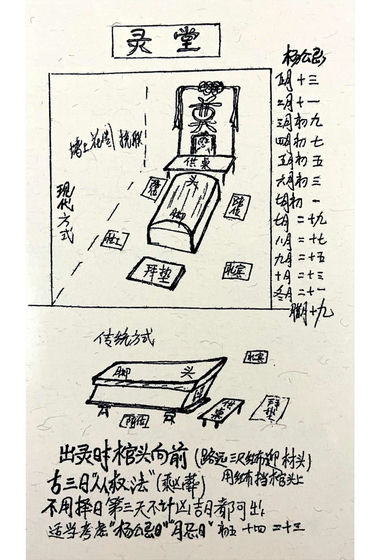 灵堂
杨公忌
正月十三
二月十一
三月初九
四月初七
五月初五
六月初三
七月初一
七月二十九
八月二十七
九月二十五
十月二十三
冬月二十一
腊月十九
墙上花圈挽联
现代方式
奠
供桌
头
脚
陪
陪
礼宾
拜垫
传统方式
脚
头
礼宾
供桌
拜垫
出灵时棺头向前(路远三尺红布迎材头)
用红布挡棺头上
古三日"从救法"(乘凶葬)
不用择日第三天不计凶吉日都可出。
适当考虑"杨公忌日""月忌日"初五十四二十三